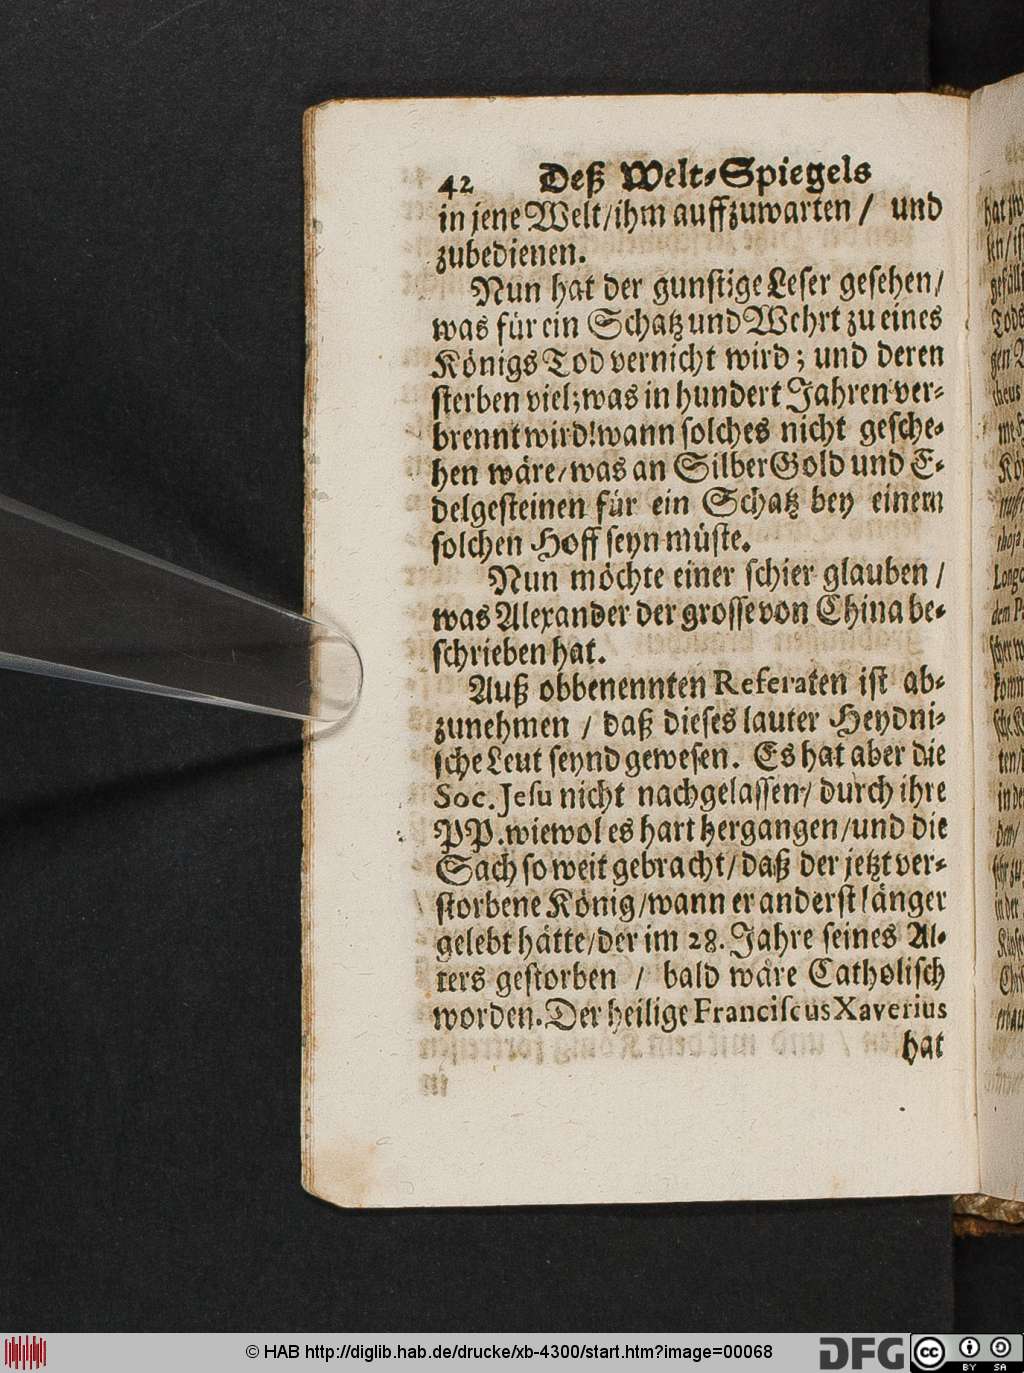 42 Deß Welt-Spiegels
in jene Welt/ihm auffzuwarten / und
zubedienen.
Nun hat der gunstige Leser gesehen/
was für ein Schatz und Wehrt zu eines
Königs Tod vernicht wird; und deren
sterben viel; was in hundert Jahren ver-
brennt wird! wann solches nicht gesche-
hen wäre/was an Silber Gold und E-
delgesteinen für ein Schatz bey einem
solchen Hoff seyn müste.
Nun möchte einer schier glauben /
was Alexander der grosse von China be-
schrieben hat.
Auß obbenennten Referaten ist ab-
zunehmen / daß dieses lauter Heydni-
sche Leut seynd gewesen. Es hat aber die
Soc. Jesu nicht nachgelassen / durch ihre
PP. wiewol es hart hergangen/und die
Sach so weit gebracht/daß der jetzt ver-
storbene König/wann er anderst länger
gelebt hätte/der im 28. Jahre seines Al-
ters gestorben / bald wäre Catholisch
worden. Der heilige Franciscus Xaverius
hat
© HAB http://diglib.hab.de/drucke/xb-4300/start.htm?image=00068
DFG
cc BY SA